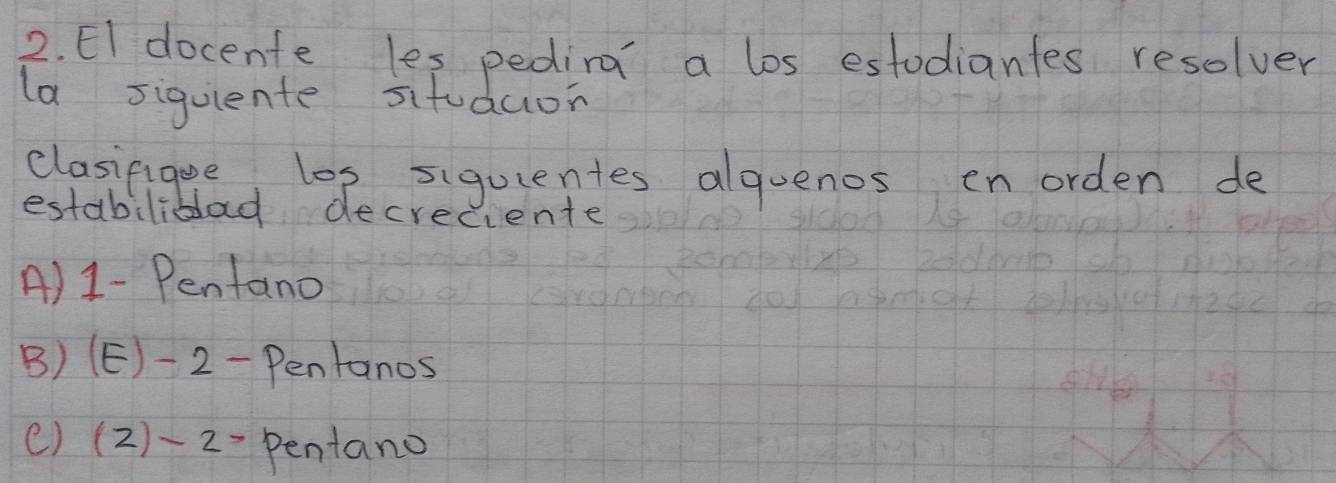 2. El docente les pedirá a los estudiantes resolver
la siguiente situación
Clasifique los siguientes alquenos en orden de
estabilidad decreciente
A) 1- Pentano
B) (E) - 2 - Pentanos
C) (Z) - 2 - pentano